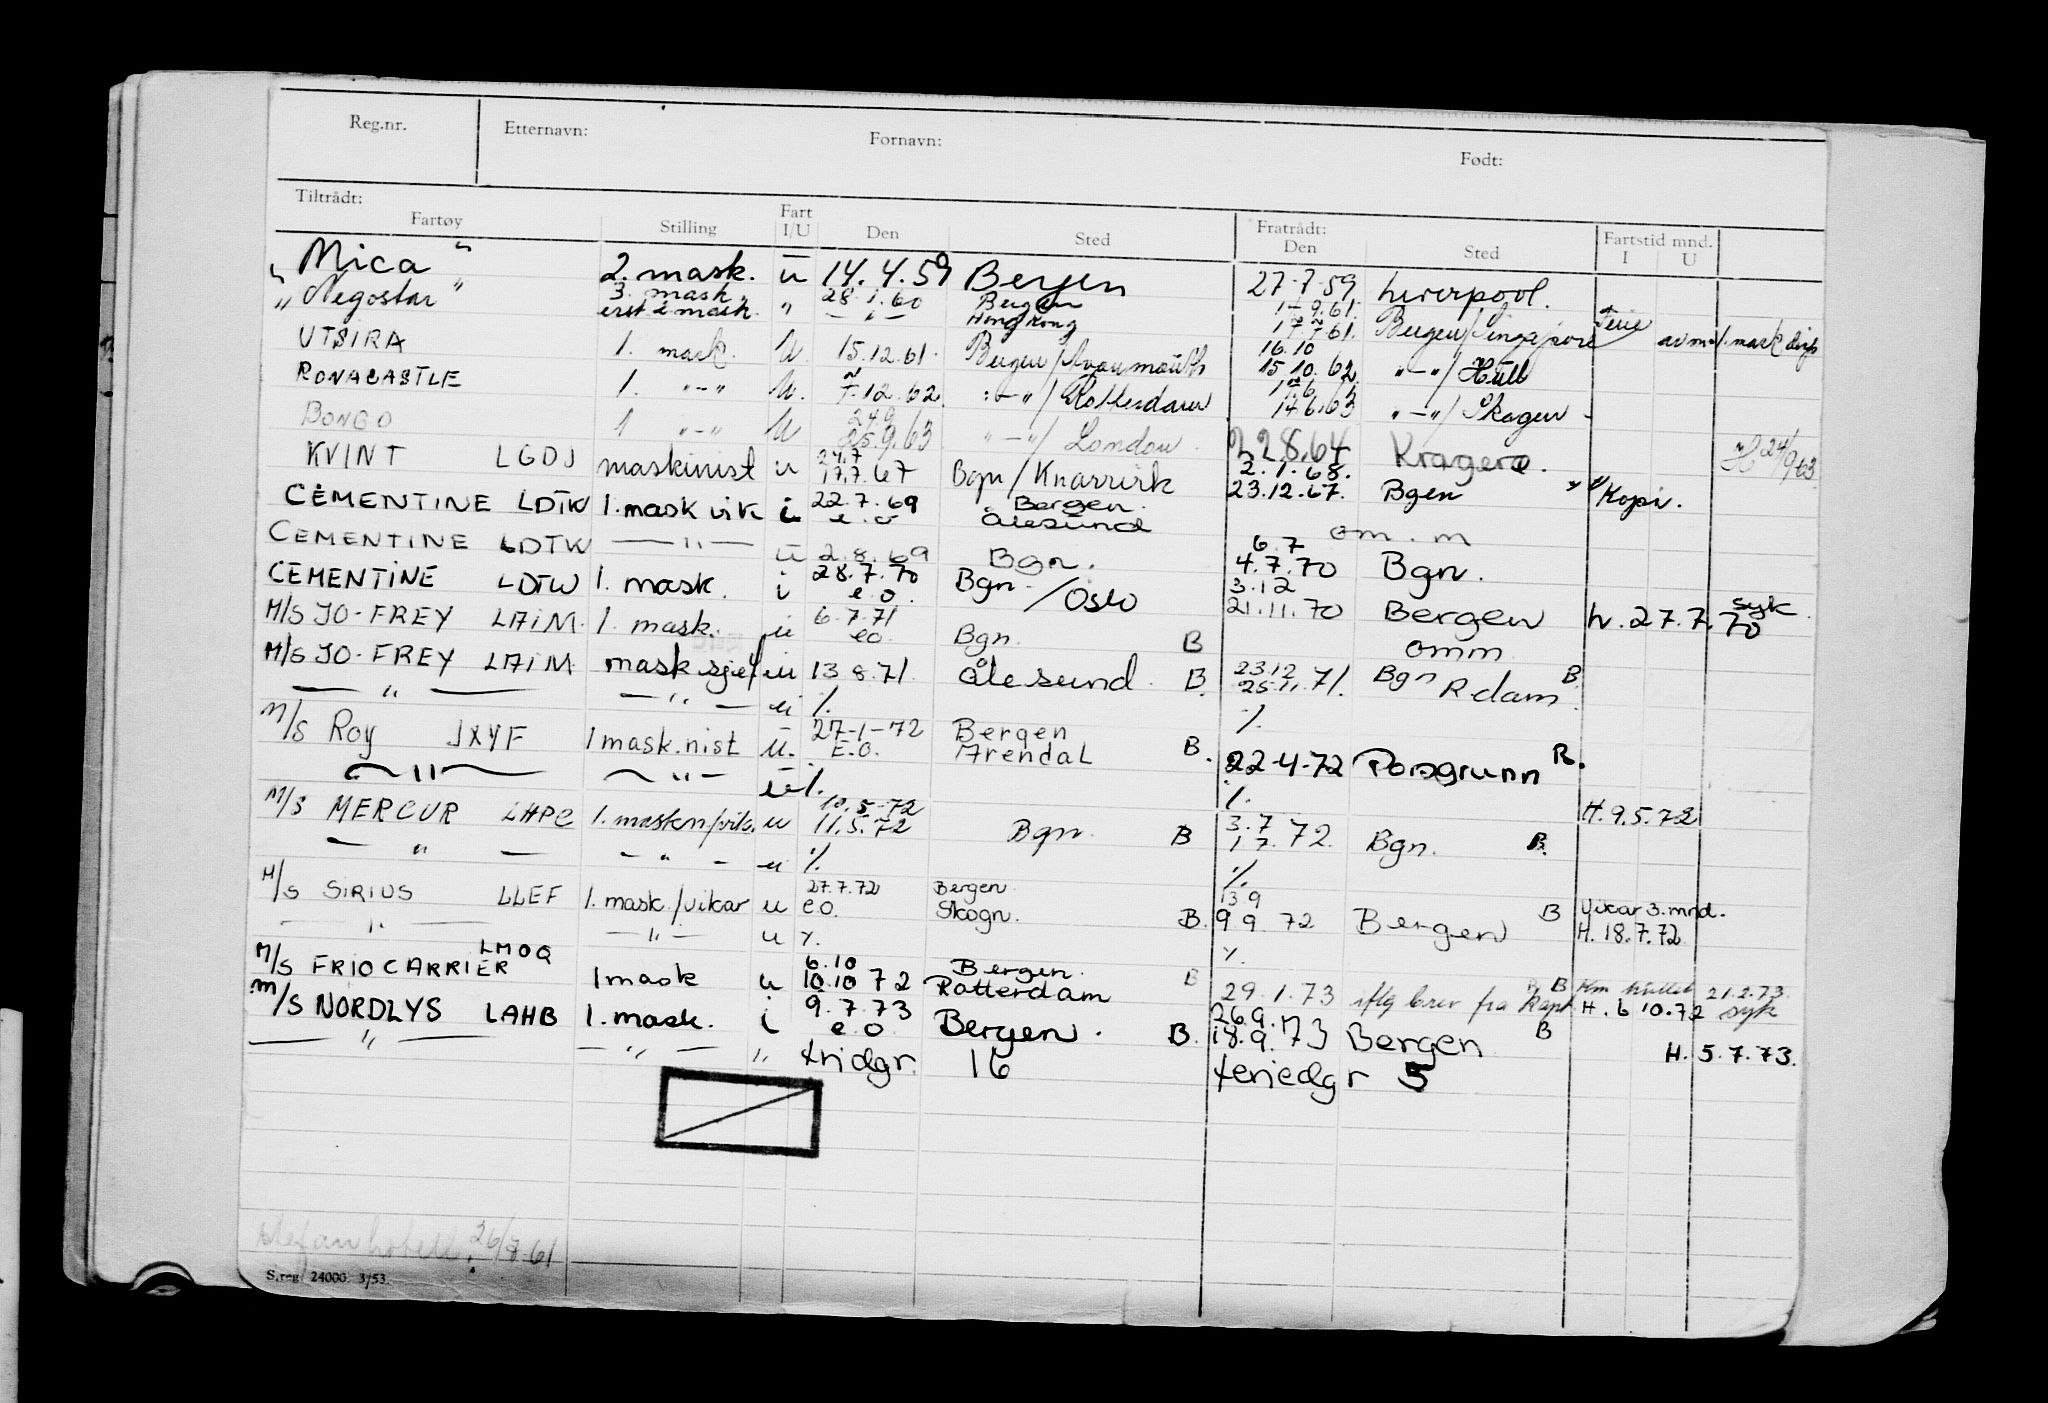 Reg.nr. Etternavn: Fornavn: Født:
Tiltrådt: Fratrådt: Fartstid mnd.
Fartøy Stilling Fart I/U Den Sted Den Sted I U
"Mica" 2. mask. u 14.4.59 Bergen 27-7-59 Liverpool.
"Negostar" 3. mask. " 28.1.60 Bergen 1961.
erst. 2 mask. — " — Hong Kong 17.7.61. Bergen/Singapore Ferie
UTSIRA 1. mask. U. 15.12.61. Bergen/Avonmouth 16.10 15.10.62. "—"/Hull
RONACASTLE 1. "—" U. 7.12.62. "—"/Rotterdam 14.6.63 "—"/Skagen
BONGO 1 "—" U 24.9 25.9.63 "—"/London 22.8.64 Kragerø. 24/9.63.
KVINT LGDJ maskinist u 24.7 17.7.67 Bgn/Knarrvik 2.1.68. 23.12.67. Bgen "Kopi".
CEMENTINE LDTW 1. mask vik i 22.7.69 Bergen.
e.o Ålesund om. m
CEMENTINE LDTW —"— u 2.8.69 Bgn. 6.7 4.7.70 Bgn.
CEMENTINE LDTW 1. mask. i 28.7.70 e.o. Bgn./Oslo 3.12 21.11.70 Bergen h. 27.7.70 syk.
M/S JO-FREY LAIM. 1. mask. u 6.7.71 eo. Bgn. B omm
M/S JO-FREY LAIM mask.sjef u 13.8.71. Ålesund. B. 23.12 25.11.71. Bgn R-dam B.
—"— —"— u %. %.
M/S Roy JXYF 1 mask.nist u. 27-1-72 Bergen
E.O. Arendal B. 22-4-72 Porsgrunn R.
—"— —"— u %. %. H. 9.5.72
M/S MERCUR LHPC 1. maskn/vik. u 10.5-72 11.5.72 Bgn. B 3.7 1.7.72. Bgn. B.
— " — — " — u %. %.
M/S SIRIUS LLEF 1. mask./vikar u 27.7.72 Bergen
eo. Skogn. B. 13.9 9.9.72 Bergen B Vikar 3. mnd.
H. 18.7.72
—"— —"— u %. %.
M/S FRIOCARRIER LMOQ 1 mask u 6.10 Bergen.
10.10 72 Rotterdam B 29.1.73 iflg brev fra Kapt. B 21.2.73.
H. 6 10.72 syk
M/S NORDLYS LAHB 1. mask. i 9.7.73 e.o. Bergen. B. 26.9. 18.9.73 Bergen B H. 5.7.73.
—"— —"— " fridgr. 16 feriedgr 5
26/8-61
S.reg. 24000. 3/53.